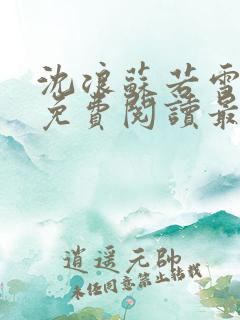 沈浪蘇若雪
免費閱讀最
逍遥元帥
未經同意禁止轉載